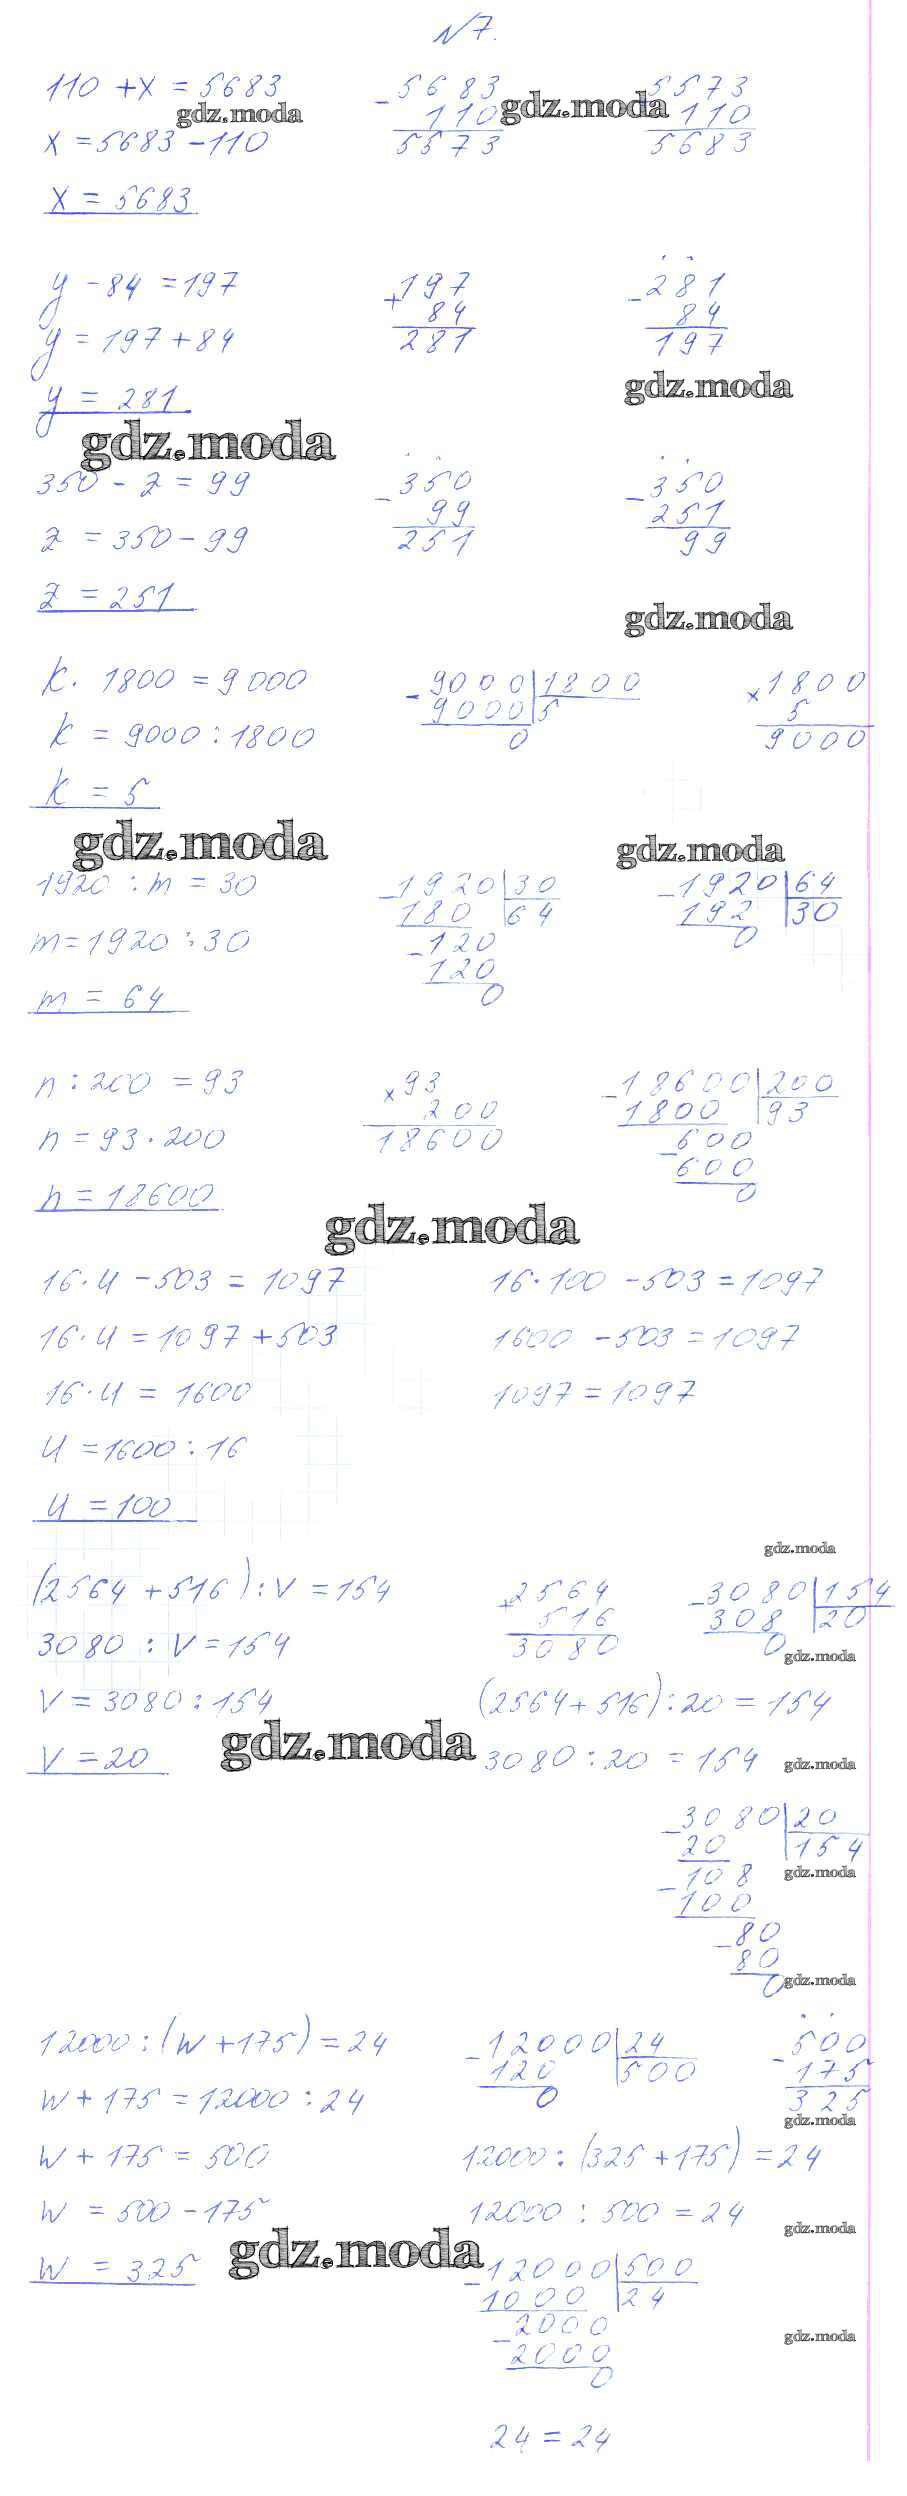 №7.
110 + x = 5683
x = 5683 - 110
x = 5683
- 5683
110
5573
5573
110
5683
gdz.moda
gdz.moda
y - 84 = 197
y = 197 + 84
y = 281
+ 197
84
281
- 281
84
197
gdz.moda
gdz.moda
350 - z = 99
z = 350 - 99
z = 251
- 350
99
251
- 350
251
99
gdz.moda
k · 1800 = 9000
k = 9000 : 1800
k = 5
- 9000 | 1800
9000 | 5
0
× 1800
5
9000
gdz.moda
gdz.moda
1920 : m = 30
m = 1920 : 30
m = 64
- 1920 | 30
180 | 64
- 120
120
0
- 1920 | 64
192 | 30
0
n : 200 = 93
n = 93 · 200
n = 18600
× 93
200
18600
- 18600 | 200
1800 | 93
- 600
600
0
gdz.moda
16 · u - 503 = 1097
16 · u = 1097 + 503
16 · u = 1600
u = 1600 : 16
u = 100
16 · 100 - 503 = 1097
1600 - 503 = 1097
1097 = 1097
gdz.moda
(2564 + 516) : v = 154
3080 : v = 154
v = 3080 : 154
v = 20
+ 2564
516
3080
- 3080 | 154
308 | 20
0
gdz.moda
(2564 + 516) : 20 = 154
3080 : 20 = 154
gdz.moda
gdz.moda
- 3080 | 20
20 | 154
- 108
100
- 80
80
0
gdz.moda
gdz.moda
12000 : (w + 175) = 24
w + 175 = 12000 : 24
w + 175 = 500
w = 500 - 175
w = 325
- 12000 | 24
120 | 500
0
- 500
175
325
gdz.moda
12000 : (325 + 175) = 24
12000 : 500 = 24
gdz.moda
gdz.moda
- 12000 | 500
1000 | 24
- 2000
2000
0
gdz.moda
24 = 24